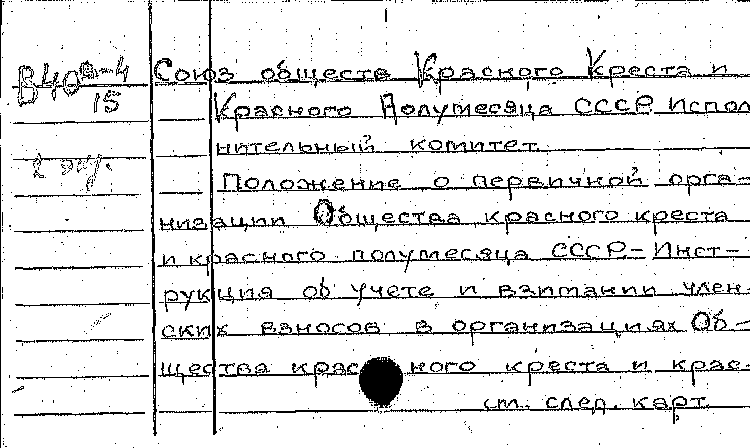 В40 а-4
15
2 экз.
Союз обществ Красного Креста и
Красного Полумесяца СССР. Испол
нительный комитет.
Положение о первичной орга-
низации Общества красного креста
и красного полумесяца СССР.- Инст-
рукция об учете и взимании член-
ских взносов в организациях Об-
щества красного креста и крас-
см. след. карт.